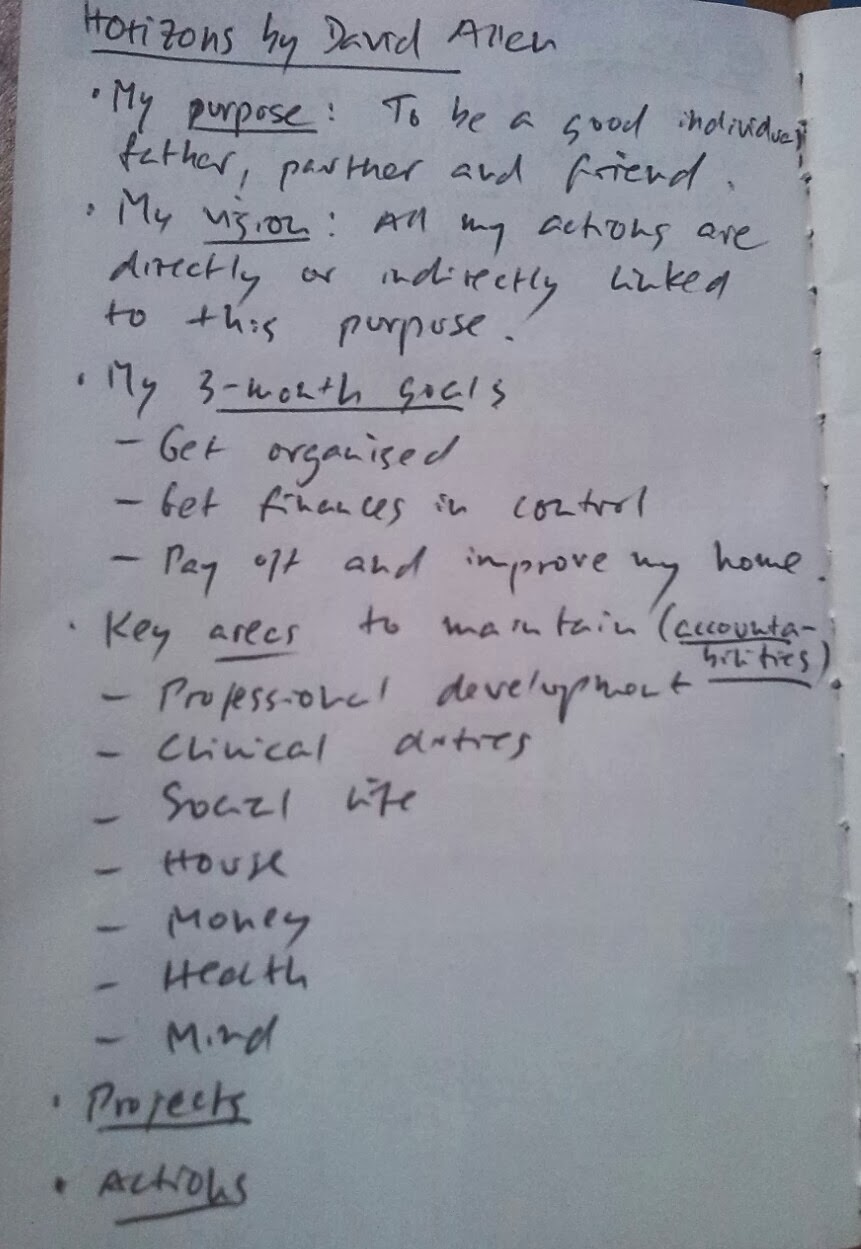 Horizons by David Allen
• My purpose: To be a good individual,
father, partner and friend.
• My vision: All my actions are
directly or indirectly linked
to this purpose.
• My 3-month goals
- Get organised
- Get finances in control
- Pay off and improve my home.
• Key areas to maintain (accounta-
bilities).
- Professional development
- Clinical duties
- Social life
- House
- Money
- Health
- Mind
• Projects
• Actions